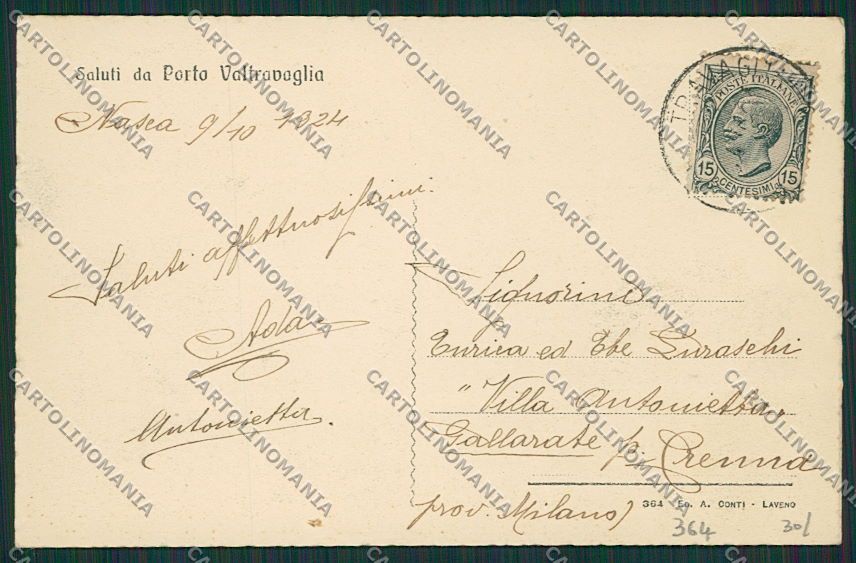 Saluti da Porto Valtravaglia
Nasca 9/10 1324
Saluti affettuosissimi.
Ada
Antonietta.
TRAVAGLI
POSTE ITALIANE
15 15
CENTESIMI
Signorine
Enrica ed Ebe Luraschi
"Villa Antonietta"
Gallarate p. Crenna
prov. Milano)
364 Ed. A. Conti - Laveno
364 30/
CARTOLINOMANIA